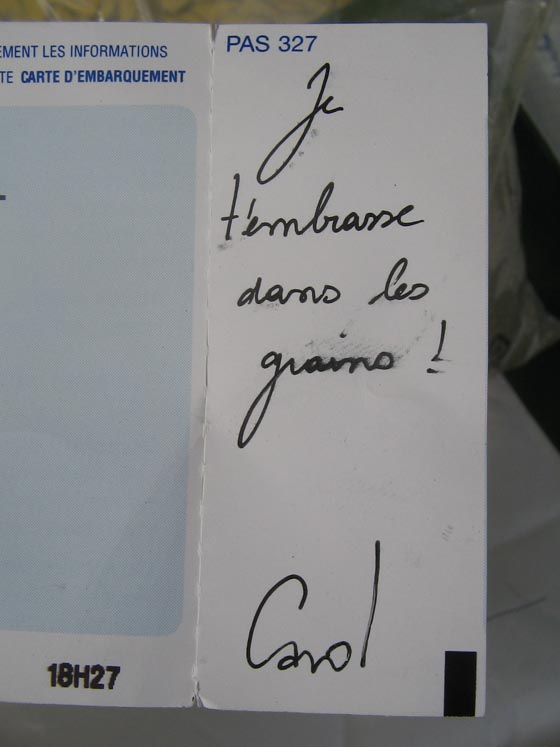 EMENT LES INFORMATIONS
TE CARTE D'EMBARQUEMENT
18H27
PAS 327
Je
t'embrasse
dans les
grains !
Carol